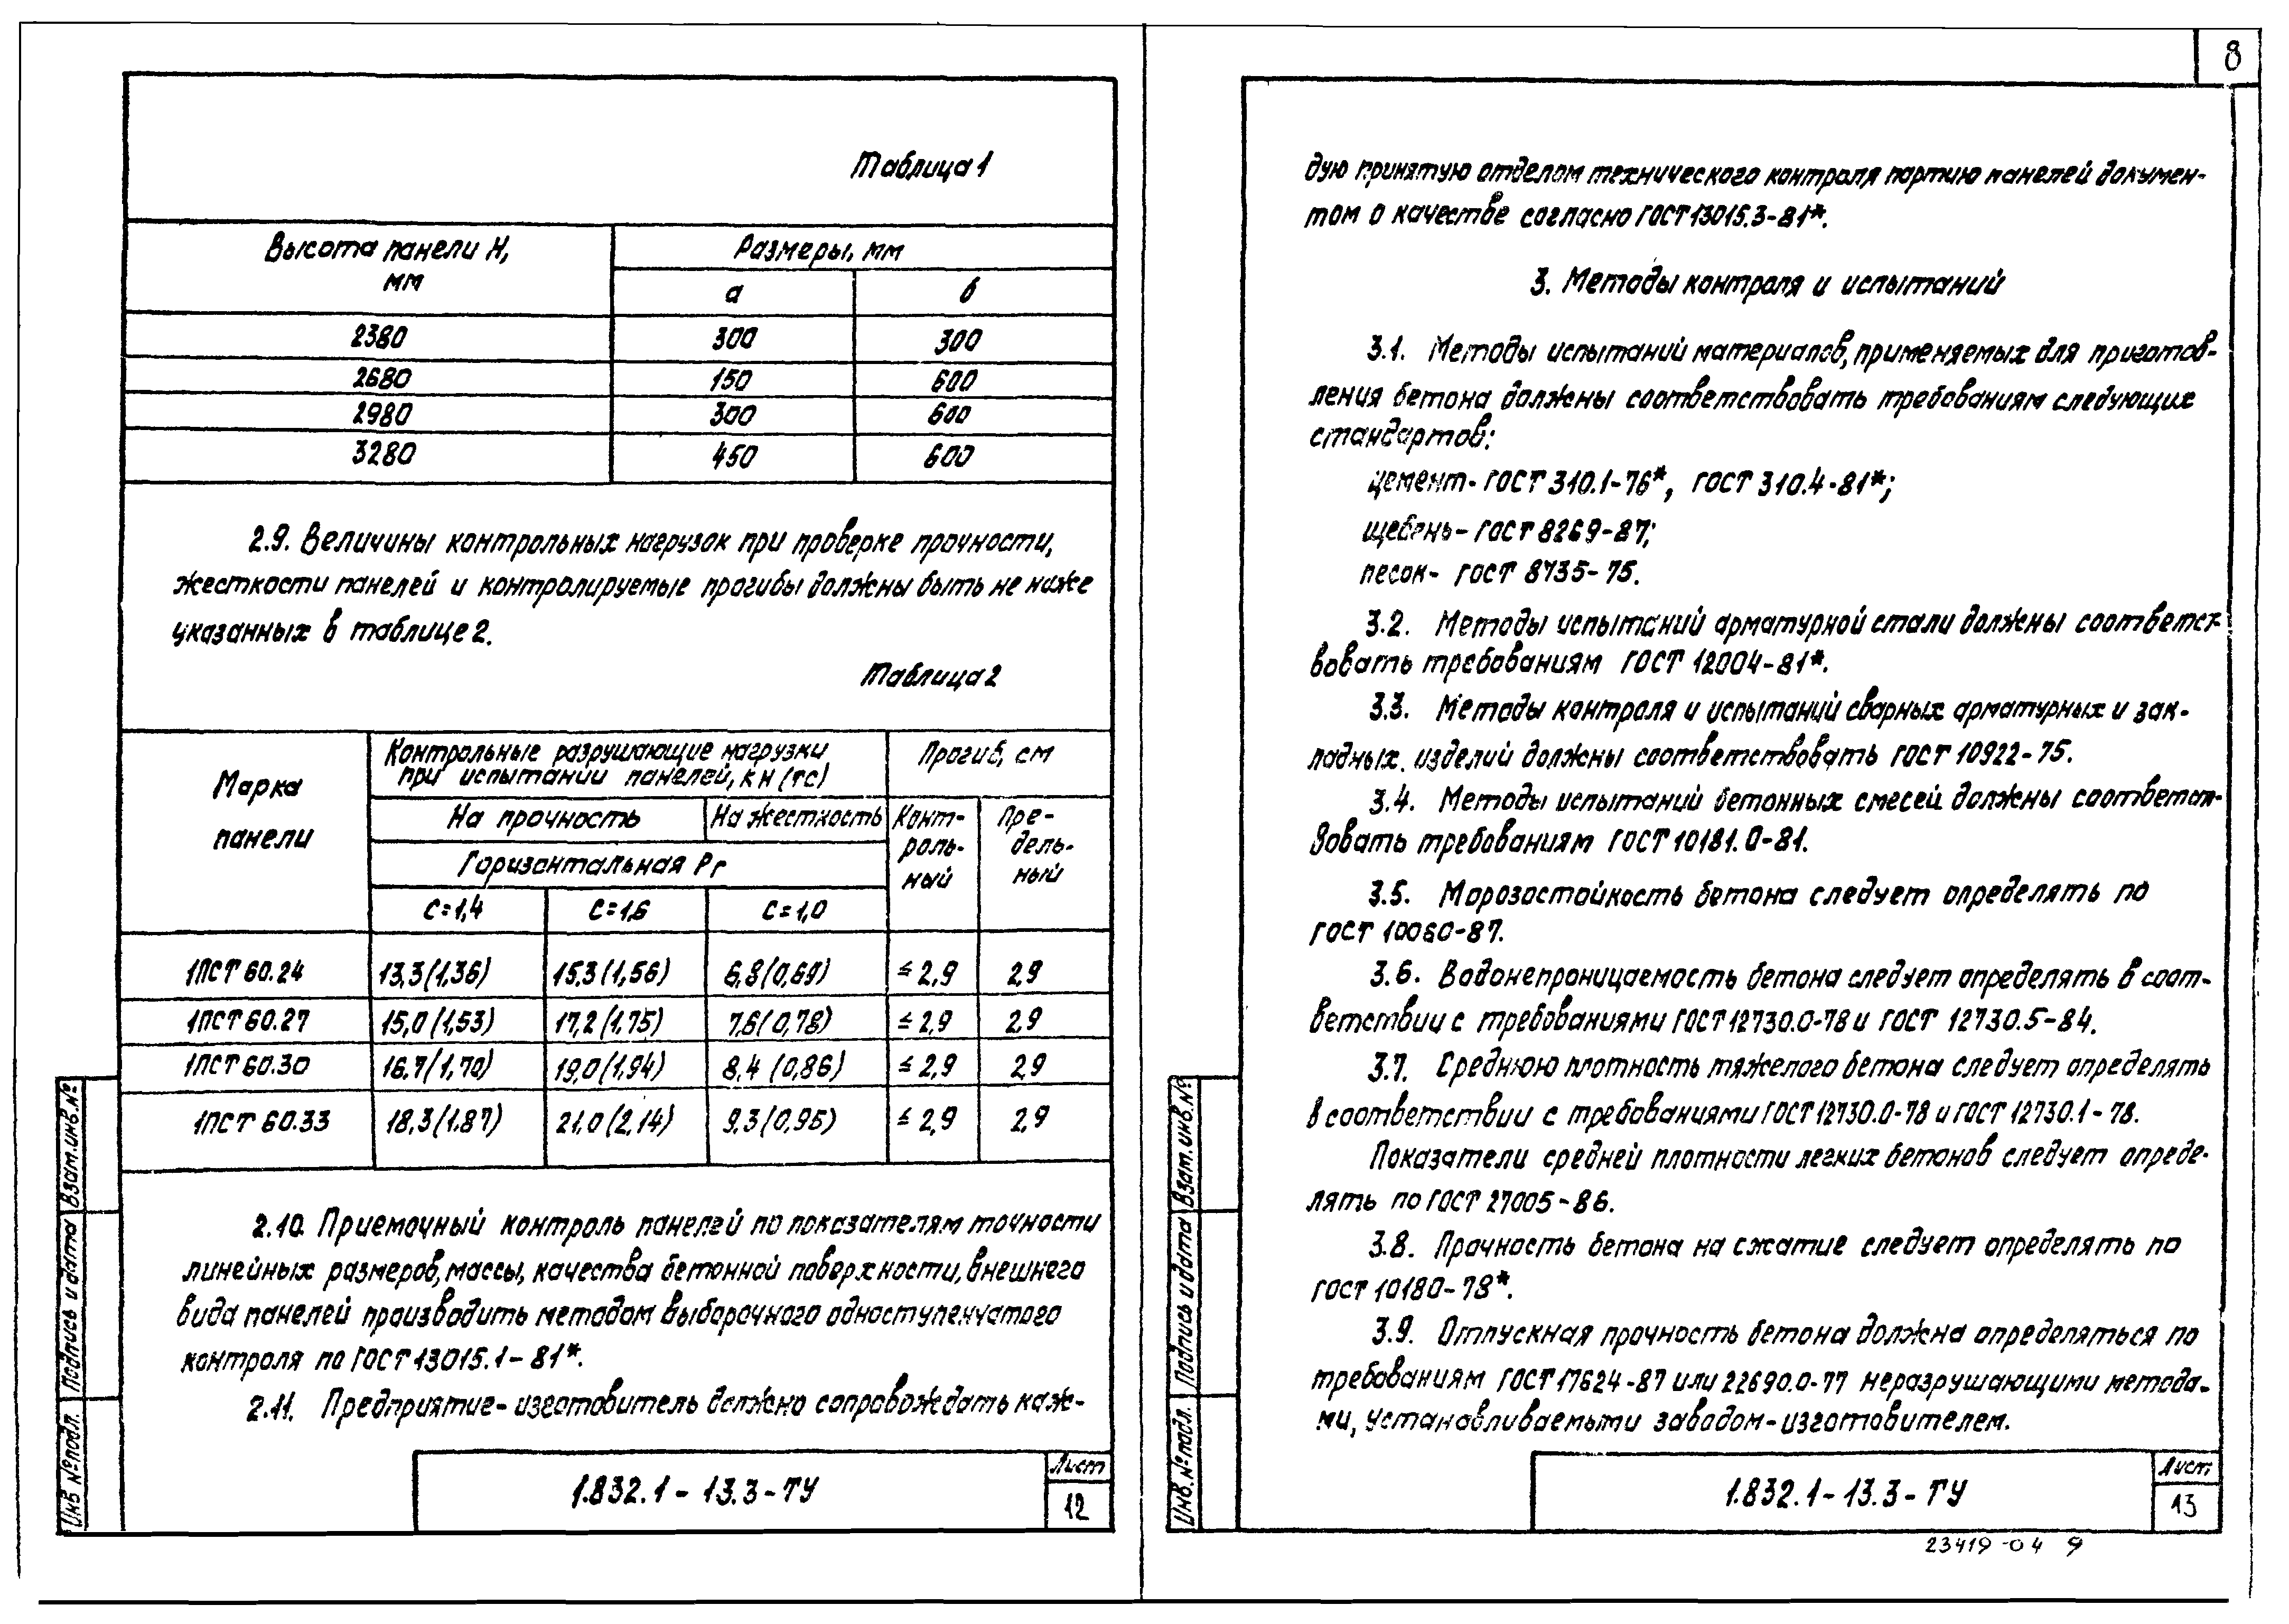 Таблица 1
Высота панели Н, мм
Размеры, мм
а
б
2380 300 300
2680 150 600
2980 300 600
3280 450 600
2.9. Величины контрольных нагрузок при проверке прочности,
жесткости панелей и контролируемые прогибы должны быть не ниже
указанных в таблице 2.
Таблица 2
Марка
панели
Контрольные разрушающие нагрузки
при испытании панелей, кН (тс)
Прогиб, см
На прочность
На жесткость
Конт-
роль-
ный
Пре-
дель-
ный
Горизонтальная Рг
С=1,4 С=1,6 С=1,0
1ПСТ 60.24 13,3 (1,36) 15,3 (1,56) 6,8 (0,69) ≤ 2,9 2,9
1ПСТ 60.27 15,0 (1,53) 17,2 (1,75) 7,6 (0,78) ≤ 2,9 2,9
1ПСТ 60.30 16,7 (1,70) 19,0 (1,94) 8,4 (0,86) ≤ 2,9 2,9
1ПСТ 60.33 18,3 (1.87) 21,0 (2,14) 9,3 (0,95) ≤ 2,9 2,9
2.10. Приемочный контроль панелей по показателям точности
линейных размеров, массы, качества бетонной поверхности, внешнего
вида панелей производить методом выборочного одноступенчатого
контроля по ГОСТ 13015.1-81*.
2.11. Предприятие-изготовитель должно сопровождать каж-
Инв № подл. Подпись и дата Взам.инв.№
1.832.1-13.3-ТУ
Лист
12
8
дую принятую отделом технического контроля партию панелей докумен-
том о качестве согласно ГОСТ 13015.3-81*.
3. Методы контроля и испытаний
3.1. Методы испытаний материалов, применяемых для приготов-
ления бетона должны соответствовать требованиям следующих
стандартов:
цемент - ГОСТ 310.1-76*, ГОСТ 310.4-81*;
щебень - ГОСТ 8269-87;
песок - ГОСТ 8735-75.
3.2. Методы испытаний арматурной стали должны соответст-
вовать требованиям ГОСТ 12004-81*.
3.3. Методы контроля и испытаний сварных арматурных и зак-
ладных изделий должны соответствовать ГОСТ 10922-75.
3.4. Методы испытаний бетонных смесей должны соответст-
вовать требованиям ГОСТ 10181.0-81.
3.5. Морозостойкость бетона следует определять по
ГОСТ 10060-87.
3.6. Водонепроницаемость бетона следует определять в соот-
ветствии с требованиями ГОСТ 12730.0-78 и ГОСТ 12730.5-84.
3.7. Среднюю плотность тяжелого бетона следует определять
в соответствии с требованиями ГОСТ 12730.0-78 и ГОСТ 12730.1-78.
Показатели средней плотности легких бетонов следует опреде-
лять по ГОСТ 27005-86.
3.8. Прочность бетона на сжатие следует определять по
ГОСТ 10180-78*.
3.9. Отпускная прочность бетона должна определяться по
требованиям ГОСТ 17624-87 или 22690.0-77 неразрушающими метода-
ми, устанавливаемыми заводом-изготовителем.
Инв. № подл. Подпись и дата Взам.инв.№
1.832.1-13.3-ТУ
Лист
13
23419-04 9